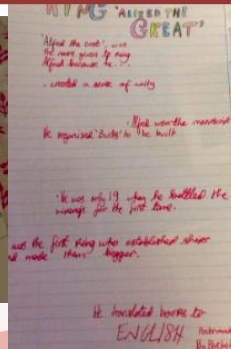 KING "ALFRED THE
GREAT"
'Alfred the Great', was
the name given to King
Alfred because he..
- created a sense of unity
- Alfred won the
He organised 'Burhs' to be built
- He was only 19 when he battled the
vikings for the first time.
was the first King who established ships
made them bigger.
He translated books to
ENGLISH